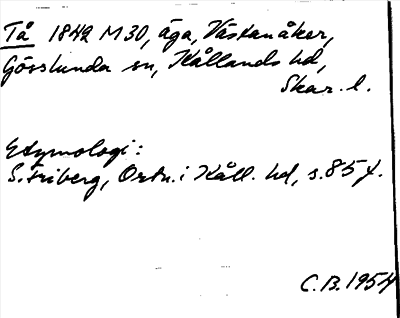 Tå 1842 M30, äga, Västanåker,
Gösslunda sn, Kållands hd,
Skar. l.
Etymologi:
S. Friberg, Ortn. i Kåll. hd, s. 85 f.
C.B. 1954